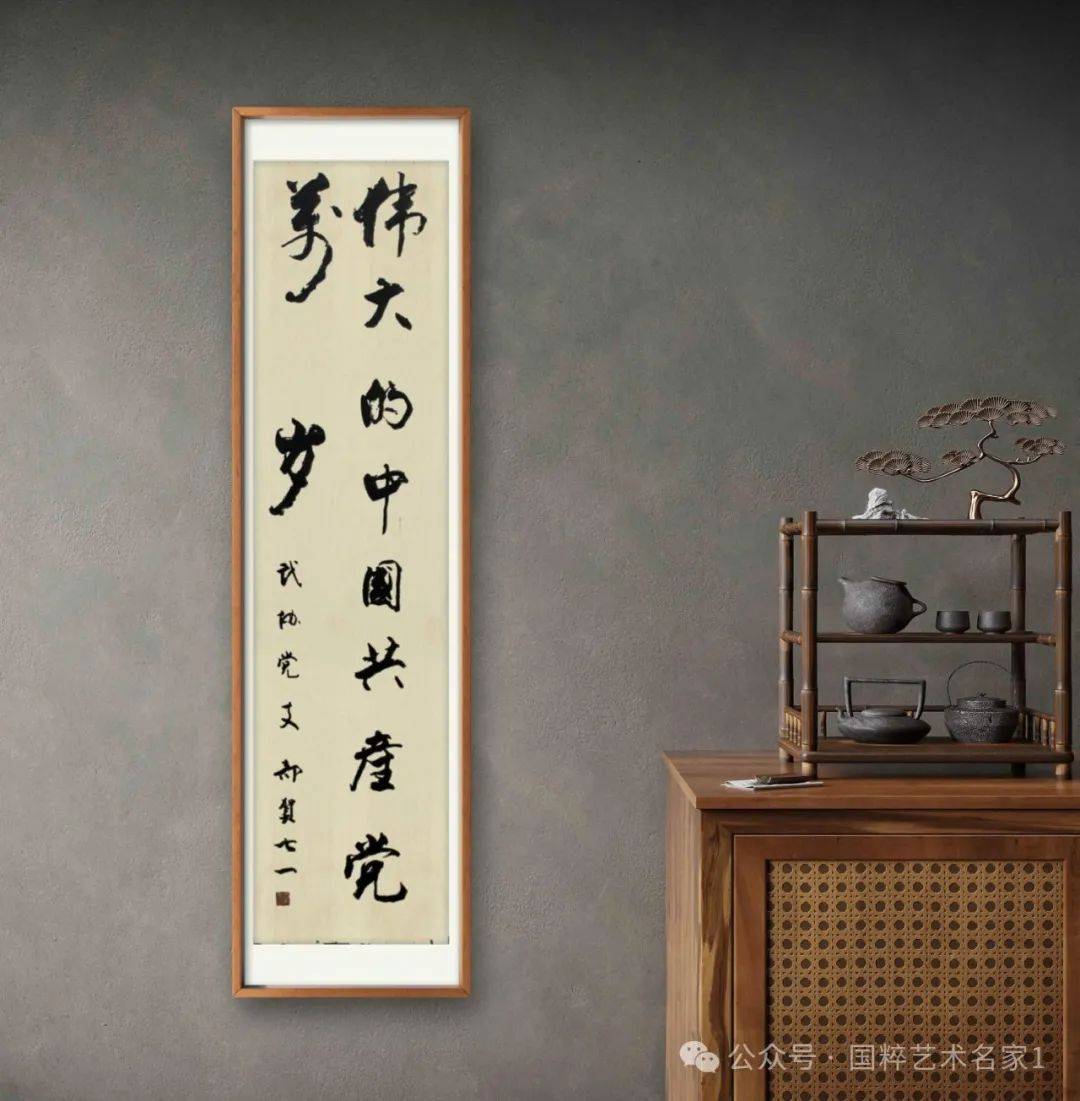 伟大的中國共產党
萬岁
武协党支部贺七一
公众号·国粹艺术名家1